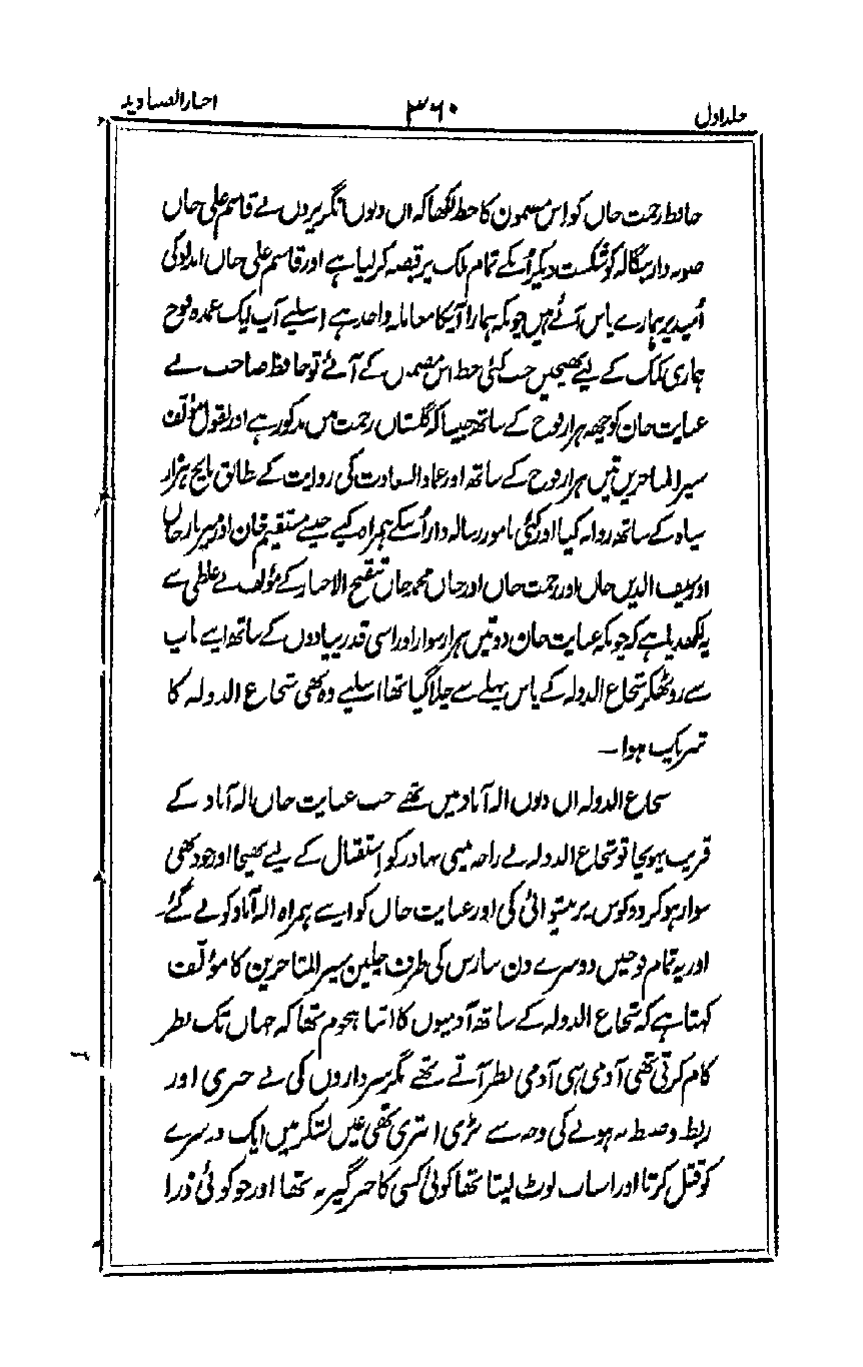 جلد اول ۳۶۰ اخبار الصنادید
حافظ رحمت خاں کو اس مضمون کا خط لکھا کہ ان دنوں انگریزوں نے قاسم علی خاں
صوبہ دار بنگالہ کو شکست دیکر اُسکے تمام ملک پر قبضہ کر لیا ہے اور قاسم علی خاں امداد کی
اُمید پر ہمارے پاس آئے ہیں چونکہ ہمارا آپکا معاملہ واحد ہے اسلیے آپ ایک عمدہ فوج
ہماری کمک کے لیے بھیجیں جب کئی خط اس مضمون کے آئے تو حافظ صاحب نے
عنایت خان کو چھ ہزار فوج کے ساتھ جیسا کہ گلستان رحمت میں مذکور ہے اور بقول مؤلف
سیر المتاخرین تین ہزار فوج کے ساتھ اور عماد السعادت کی روایت کے مطابق پانچ ہزار
سپاہ کے ساتھ روانہ کیا اور کئی نامور رسالہ دار اُسکے ہمراہ کیے جیسے مستقیم خان اور
اور سیف الدین خاں اور رحمت خاں اور خان محمد خاں تنقیح الاخبار کے مؤلف نے غلطی سے
یہ لکھدیا ہے کہ چونکہ عنایت خان دو تین ہزار سوار اور اسی قدر پیادوں کے ساتھ اپنے باپ
سے روٹھکر شجاع الدولہ کے پاس پہلے سے چلا گیا تھا اسلیے وہ بھی شجاع الدولہ کا
شریک ہوا ۔
شجاع الدولہ ان دنوں الہ آباد میں تھے جب عنایت خاں الہ آباد کے
قریب پہونچا تو شجاع الدولہ نے راجہ بینی بہادر کو استقبال کے لیے بھیجا اور خود بھی
سوار ہو کر دو کوس پر پیشوائی کی اور عنایت خاں کو اپنے ہمراہ الہ آباد کو لے گئے۔
اور یہ تمام فوجیں دوسرے دن بنارس کی طرف چلین سیر المتاخرین کا مؤلف
کہتا ہے کہ شجاع الدولہ کے ساتھ آدمیوں کا اتنا ہجوم تھا کہ جہاں تک نظر
کام کرتی تھی آدمی ہی آدمی نظر آتے تھے مگر سرداروں کی بے خبری اور
ربط و ضبط نہ ہونے کی وجہ سے بڑی ابتری تھی عین لشکر میں ایک دوسرے
کو قتل کرتا اور اسباب لوٹ لیتا تھا کوئی کسی کا خبر گیر نہ تھا اور جو کوئی ذرا